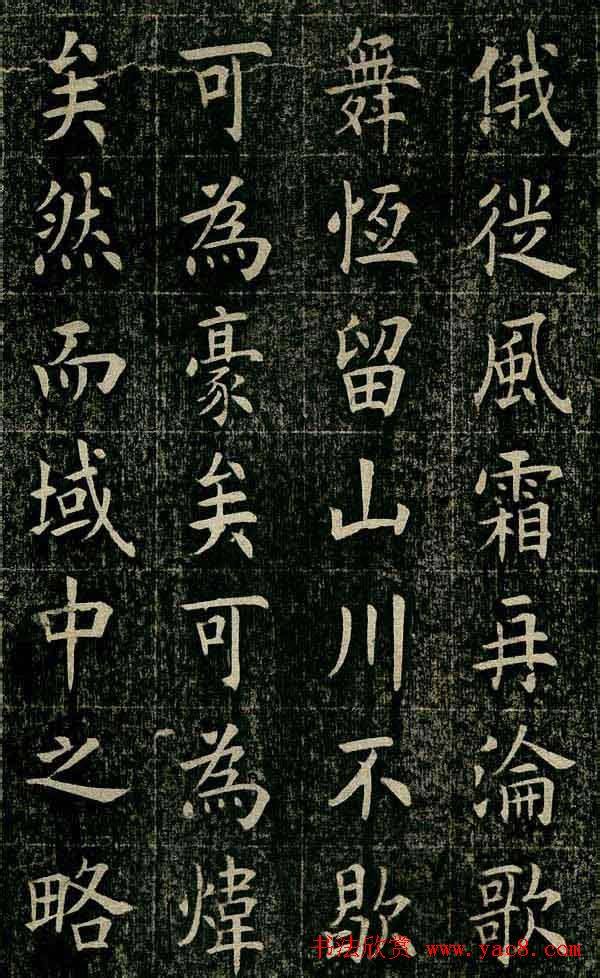 俄徙風霜再淪歌
舞恆留山川不歇
可為豪矣可為煒
矣然而域中之略
书法欣赏 www.yac8.com